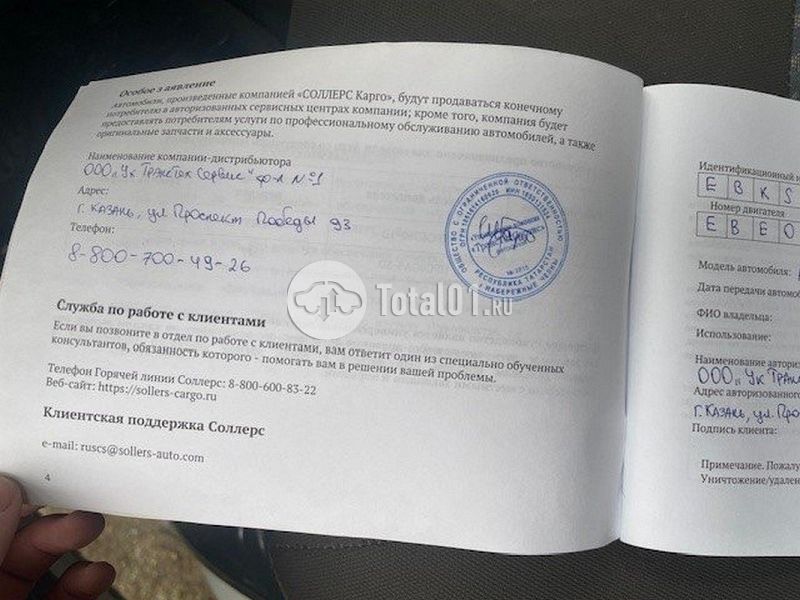 Особое заявление
Автомобили, произведенные компанией «СОЛЛЕРС Карго», будут продаваться конечному
потребителю в авторизованных сервисных центрах компании; кроме того, компания будет
предоставлять потребителям услуги по профессиональному обслуживанию автомобилей, а также
оригинальные запчасти и аксессуары.
Наименование компании-дистрибьютора
ООО "УК ТрансТех Сервис" ф-л №1
Адрес:
г. Казань, ул Проспект Победы 93
Телефон:
8-800-700-49-26
ОБЩЕСТВО С ОГРАНИЧЕННОЙ ОТВЕТСТВЕННОСТЬЮ
РЕСПУБЛИКА ТАТАРСТАН
г. НАБЕРЕЖНЫЕ ЧЕЛНЫ
Total01.RU
Служба по работе с клиентами
Если вы позвоните в отдел по работе с клиентами, вам ответит один из специально обученных
консультантов, обязанность которого - помогать вам в решении вашей проблемы.
Телефон Горячей линии Соллерс: 8-800-600-83-22
Веб-сайт: https://sollers-cargo.ru
Клиентская поддержка Соллерс
e-mail: ruscs@sollers-auto.com
4
Идентификационный н
E B K S
Номер двигателя
E B E O
Модель автомобиля:
Дата передачи автомоб
ФИО владельца:
Использование:
Наименование авториз
ООО "УК Транс
Адрес авторизованного
г. Казань, ул. Про
Подпись клиента:
Примечание. Пожалу
Уничтожение/удален